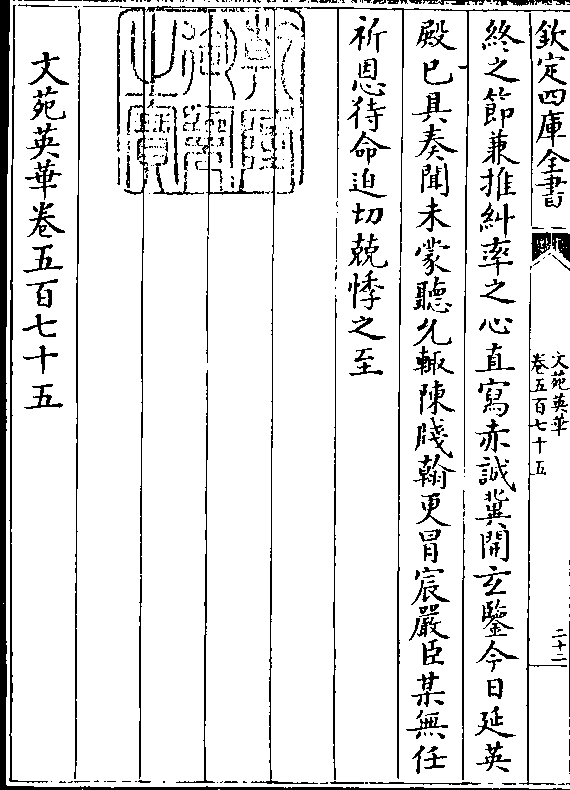 欽定四庫全書
文苑英華
卷五百七十五
二十二
終之節兼推糾率之心直寫赤誠冀開玄鑒今日延英
殿已具奏聞未蒙聽允輙陳牋翰更冒宸嚴臣某無任
祈恩待命迫切兢悸之至
乾隆御覽之寶
文苑英華卷五百七十五